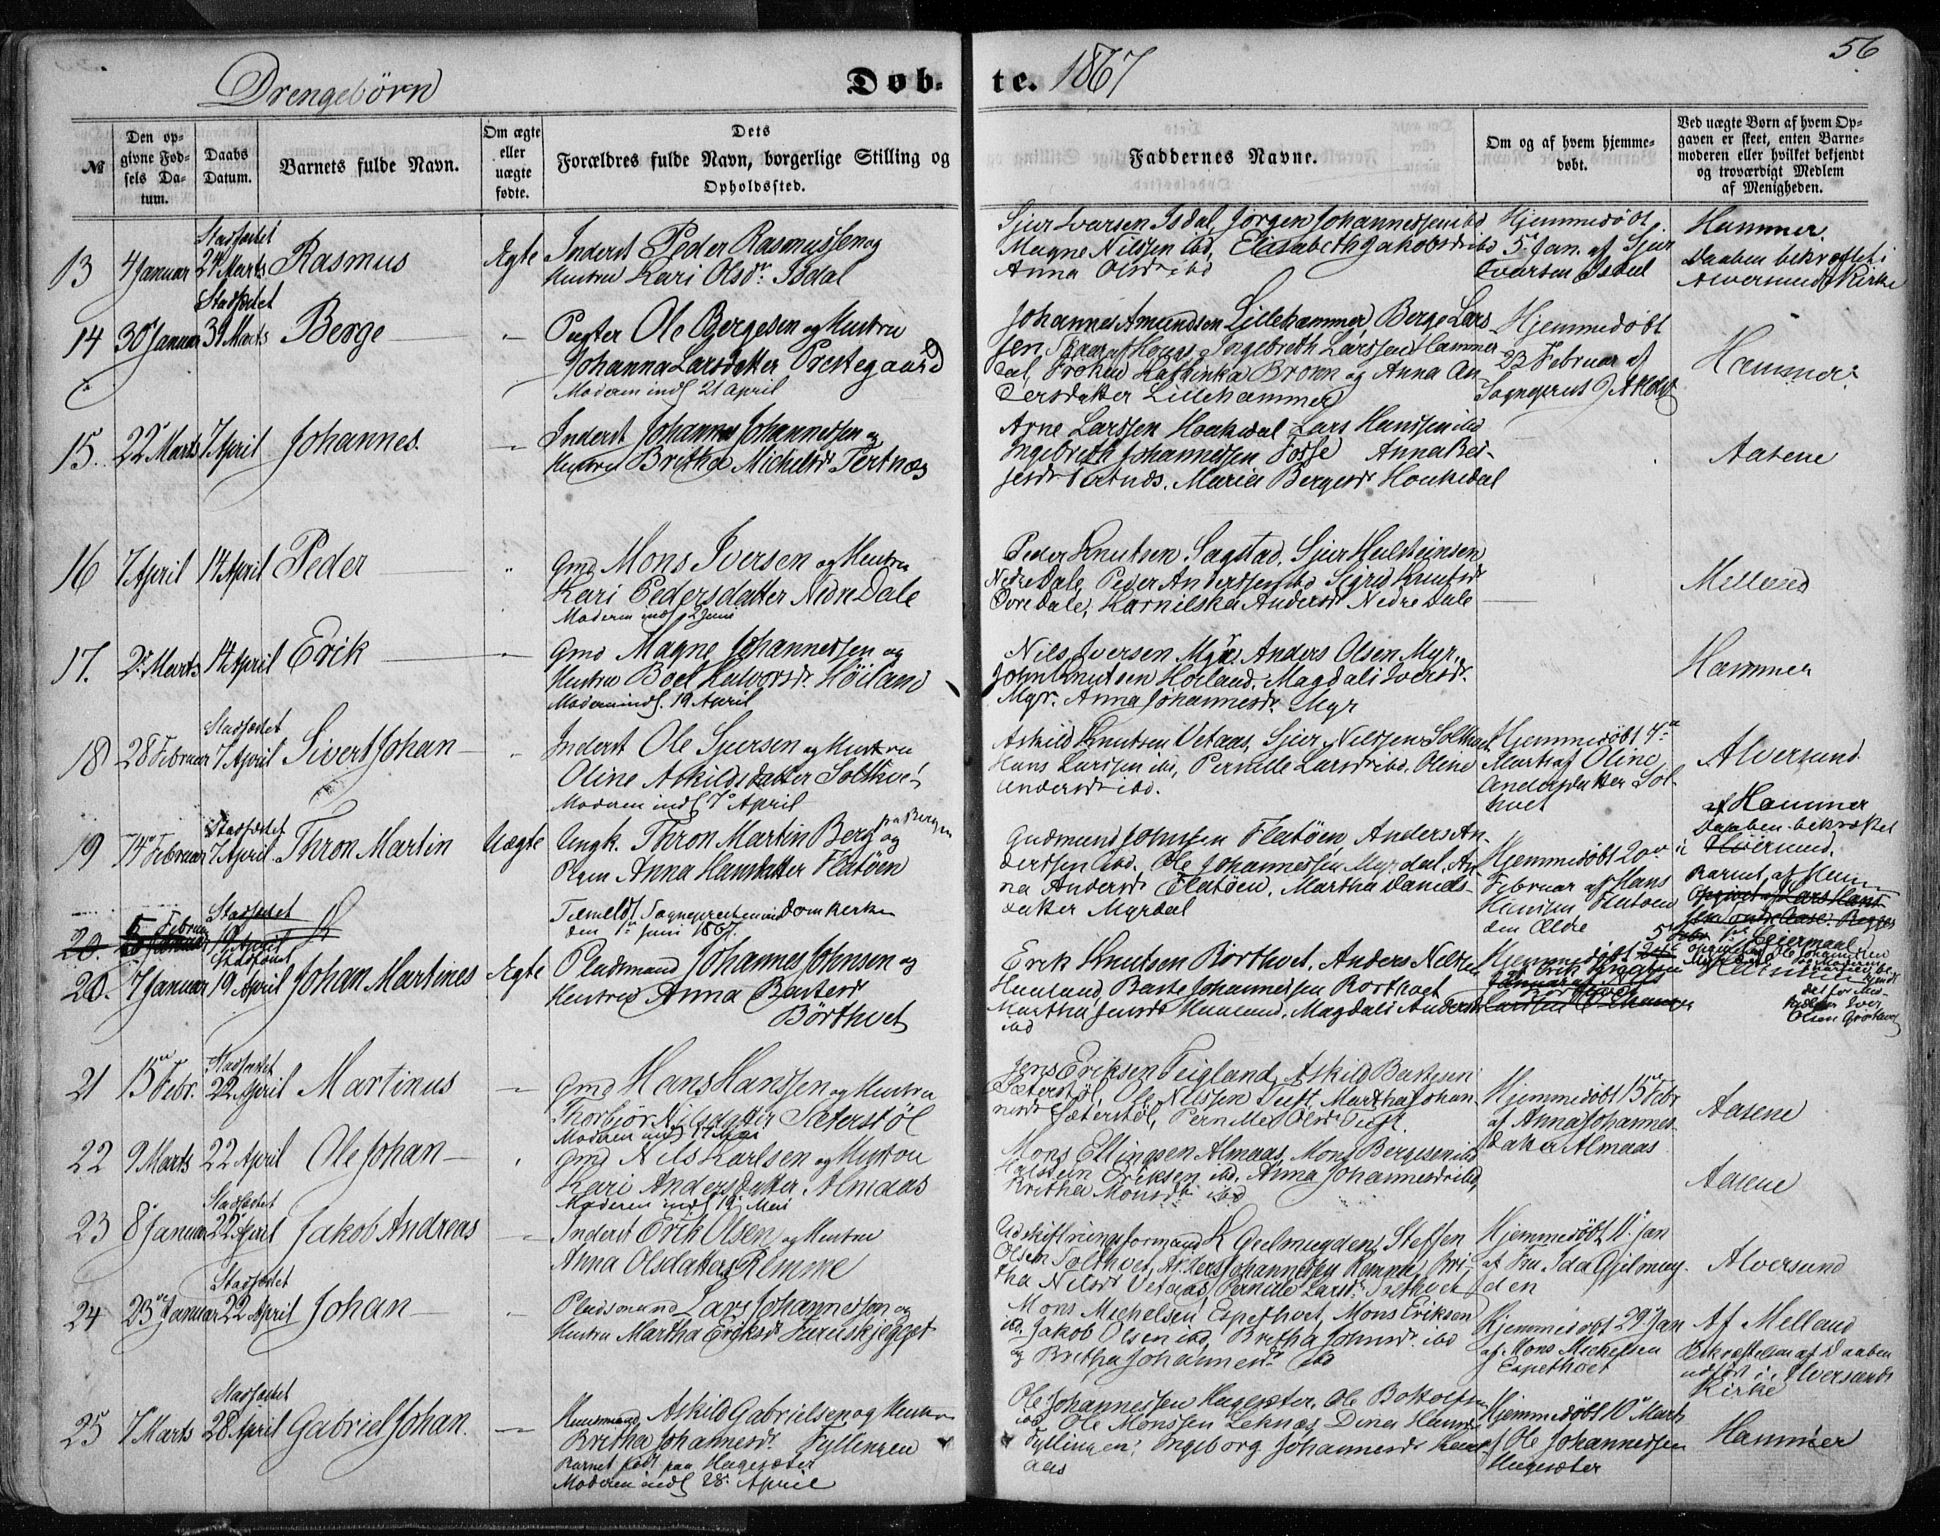 56
Drengebørn
Døb-te. 1867
№
Den op-
givne Fød-
sels Da-
tum.
Daabs
Datum.
Barnets fulde Navn.
Om ægte
eller
uægte
fødte.
Dets
Forældres fulde Navn, borgerlige Stilling og
Opholdssted.
Faddernes Navne.
Om og af hvem hjemme-
døbt.
Ved uægte Børn af hvem Op-
gaven er skeet, enten Barne-
moderen eller hvilket bekjendt
og troværdigt Medlem
af Menigheden.
13 4 Januar Stadfæstet 24 Marts Rasmus Ægte
Inderst Peder Rasmussen og
Hustru Kari Olsdr. Isdal
Sjur Iversen Isdal, Jørgen Johannessen ibd
Magne Nilssen ibd, Elisabeth Jakobsdr ibd
Anna Olsdr ibd
Hjemmedøbt
5 Jan. af Sjur
Iversen Isdal
Hammer.
Daaben bekræftet i
Alversunds Kirke
14 30 Januar Stadfæstet 31 Marts Berge "
Pagter Ole Bergesen og Hustru
Johanna Larsdatter Prestegaard
Moderen indl 21 April
Johannes Amundsen Lillehammer, Berge Lars-
sen, Ingebreth Larssen Hammer-
dal, Frøken Kathinka Bronn og Anna An-
dersdatter Lillehammer
Hjemmedøbt
23 Februar af
Sogneprest
Hammer
15. 22 Marts 7 April Johannes. "
Inderst Johannes Johannessen og
Hustru Britha Michelsdr Tertnæs
Arne Larssen Houkedal, Lars Hanssen ibd
Ingebreth Johannessen Fosse Anna Bør-
gesdr Tertnæs. Maria Bergesdr Houkedal
Aasene
16 7 April 14 April Peder "
Gmd Mons Iversen og Hustru
Kari Pedersdatter Nedre Dale
Moderen indl 2 Juni
Peder Knutsen Sagstad, Sjur Helsteinsen
Nedre Dale, Peder Anderssen ibd Sigrid Knutsdr
Øvre Dale, Karnilska Andersdr Nedre Dale
Melland
17. 2 Marts 14 April Erik "
Gmd Magne Johannessen og
Hustru Boel Halvorsdr. Høiland
Moderen indl. 19 April
Nils Iversen Myr, Anders Olsen Myr,
John Knutsen Høiland. Magdali Iversdr.
Myr. Anna Johannesdr. Myr
Hammer
18 28 Februar Stadfæstet 7 April Sivert Johan "
Inderst Ole Sjursen og Hustru
Oline Askildsdatter Solthvet
Moderen indl 7 April
Askild Knutsen Vetaas, Sjur Nilssen Solthvet
Hans Larssen ibd, Pernille Larsdr ibd. Oline
Andersdr ibd.
Hjemmedøbt 4de
Marts af Oline
Andersdatter Sol-
hvet
Alversund
19 14 Februar Stadfæstet 7 April Thron Martin Uægte
Ungk. Thron Martin Berg paa Bergen og
Pigen Anna Hansdatter Flatøen
Tilmeldt Sognepresten ved Domkirken
den 1 Juni 1867.
Gudmund Johnsen Flatøen, Anders An-
derssen ibd. Ole Johannessen Myrdal, An-
na Andersdr Flatøen, Martha Daniels-
datter Myrdal
Hjemmedøbt 20
Februar af Hans
Hanssen Flatøen
den Ældre
af Hammer
Daaben bekræftet
i Alversund.
Barnet af
Leiermaal
20. 5 Februar Stadfæstet 19 April
20. 7 Januar Stadfæstet 19 April Johan Martines Ægte
Pladsmand Johannes Johnsen og
Hustru Anna Bastesdr
Børthvet
Erik Knutsen Børthvet. Anders Nilsen
Hualand, Baste Johannessen Børthvet
Martha Jensdr Hualand, Magdali Andersdr
ibd
Hjemmedøbt
af Erik Knutsen
Børthvet
21 15 Febr. Stadfæstet 22 April Martinus "
Gmd Hans Hanssen og Hustru
Thorbjør Nilsdatter Sæterstøl
Moderen indl 17 Mai
Jens Eriksen Teigland, Askild Bastesen
Sæterstøl, Ole Nilssen Tuft, Martha Johan-
nesdr Sæterstøl, Pernille Olsdr Tuft.
Hjemmedøbt 15 Febr
af Anna Johannes-
datter Almaas
Aasene
22 9 Marts 22 April Ole Johan "
Gmd Nils Karlsen og Hustru
Kari Andersdatter. Almaas
Moderen indl 19 Mai
Mons Ellingsen Almaas, Mons Bergesen ibd
Halstein Eriksen ibd. Anna Johannesdr ibd,
Britha Monsdr ibd
Aasene
23 8 Januar Stadfæstet 22 April Jakob Andreas "
Inderst Erik Olsen og Hustru
Anna Olsdatter Remme
Udskiftningsformand K Gjelmugden, Steffen
Olsen Solthvet, Anders Johannessen Remme, Bri-
tha Nilsdr Vetaas, Pernille Larsdr. Solthvet
Hjemmedøbt 11 Jan
af Fru Ida Gjelmug-
den
Alversund
24 23 Januar Stadfæstet 22 April Johan "
Pladsmand Lars Johannessen og
Hustru Martha Eriksdr Fureskjegget
Mons Michelsen Espethvet, Mons Eriksen
ibd. Jakob Olsen ibd, Britha Johnsdr ibd
og Britha Johannesdr ibd
Hjemmedøbt 29 Jan
af Mons Michelsen
Espethvet
Af Melland
Bekræftelsen af Daaben
udført i Alversunds
Kirke
25 7 Marts Stadfæstet 28 April Gabriel Johan. "
Huusmand Askild Gabrielsen og Hustru
Britha Johannesdr. Fyllingen
Barnet født paa Hagesæter
Moderen indl 28 April
Ole Johannessen Hagesæter, Ole Bottolfsen
ibd, Ole Monssen Leknæs, Dina Hansdr
Fyllingen, Ingeborg Johannesdr
aas
Hjemmedøbt 10 Marts
af Ole Johannessen
Hagesæter
Hammer